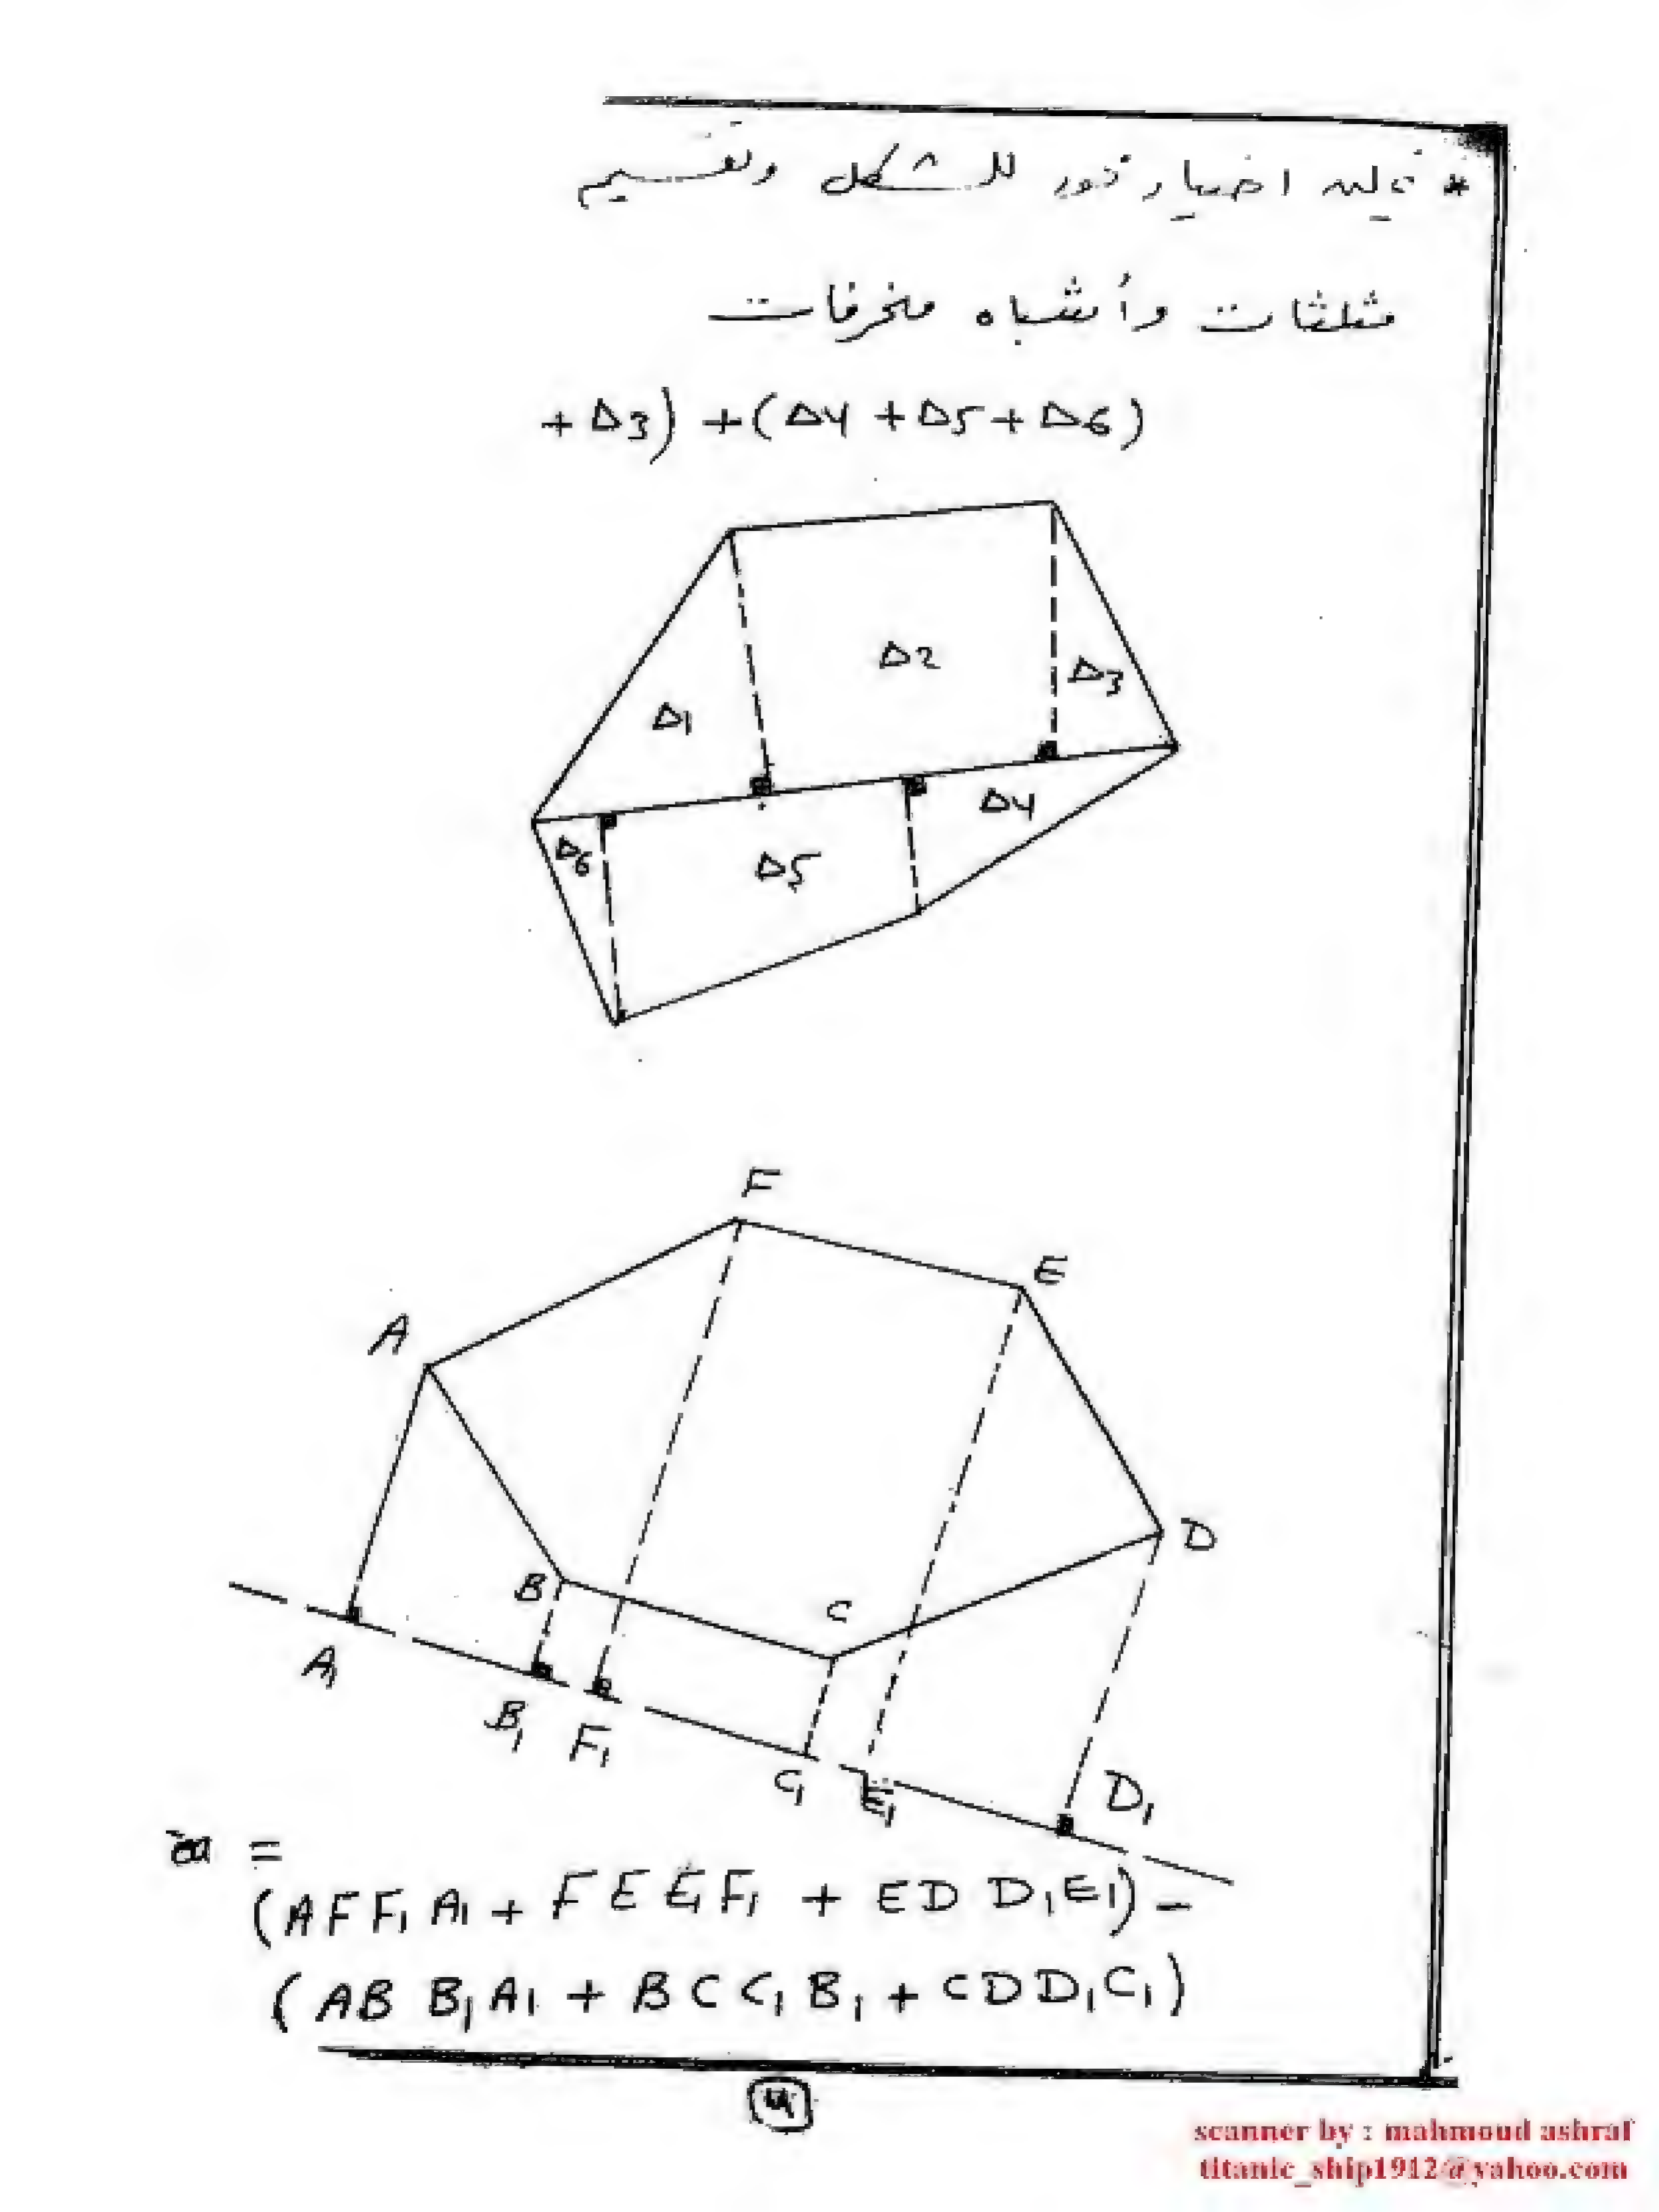 * يمكن اختيار محور للشكل وتقسيم
مثلثات وأشباه منحرفات
+ Δ3) + (Δ4 + Δ5 + Δ6)
Δ2
Δ3
Δ1
Δ4
Δ6
Δ5
F
E
A
D
B
C
A1
B1
F1
C1
E1
D1
=
(AFF1A1 + FEE1F1 + EDD1E1) -
(ABB1A1 + BCC1B1 + CDD1C1)
scanner by : mahmoud ashraf
titanic_ship1912@yahoo.com